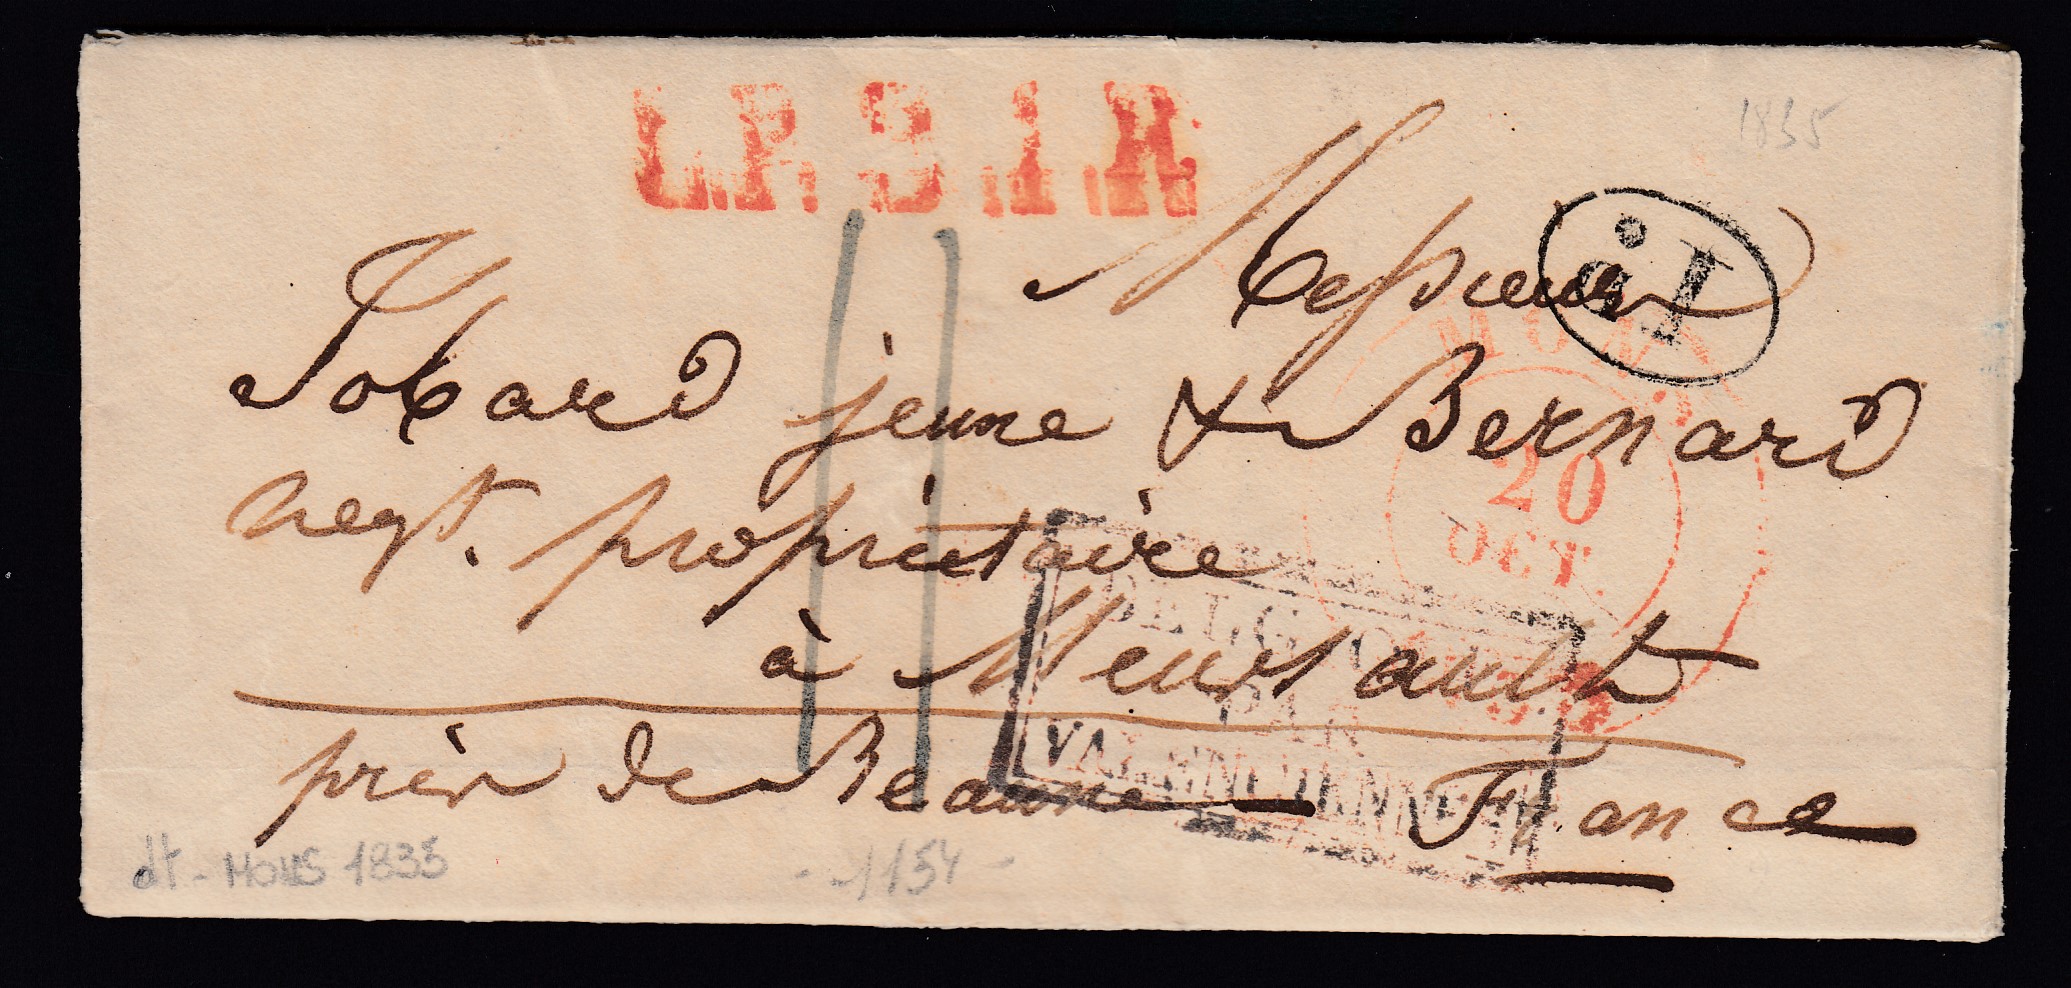 L.P.B.1.R
1835
Messieurs
Jobard jeune & Bernard
negt. propriétaire
à Meursault
près de Beaune — France
MONS
20
OCT.
BELGIQUE
PAR
VALENCIENNES
dt - MONS 1835
- 1154 -